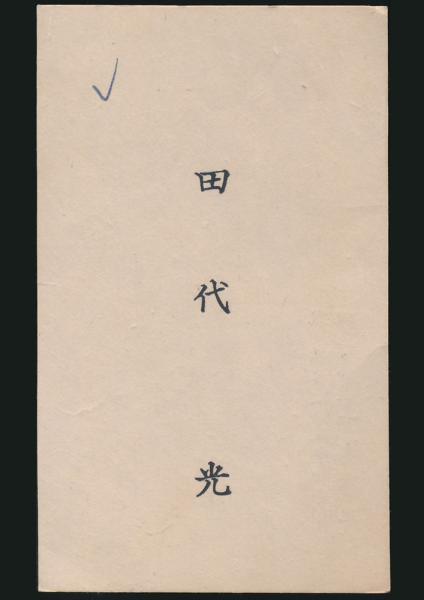 田代光